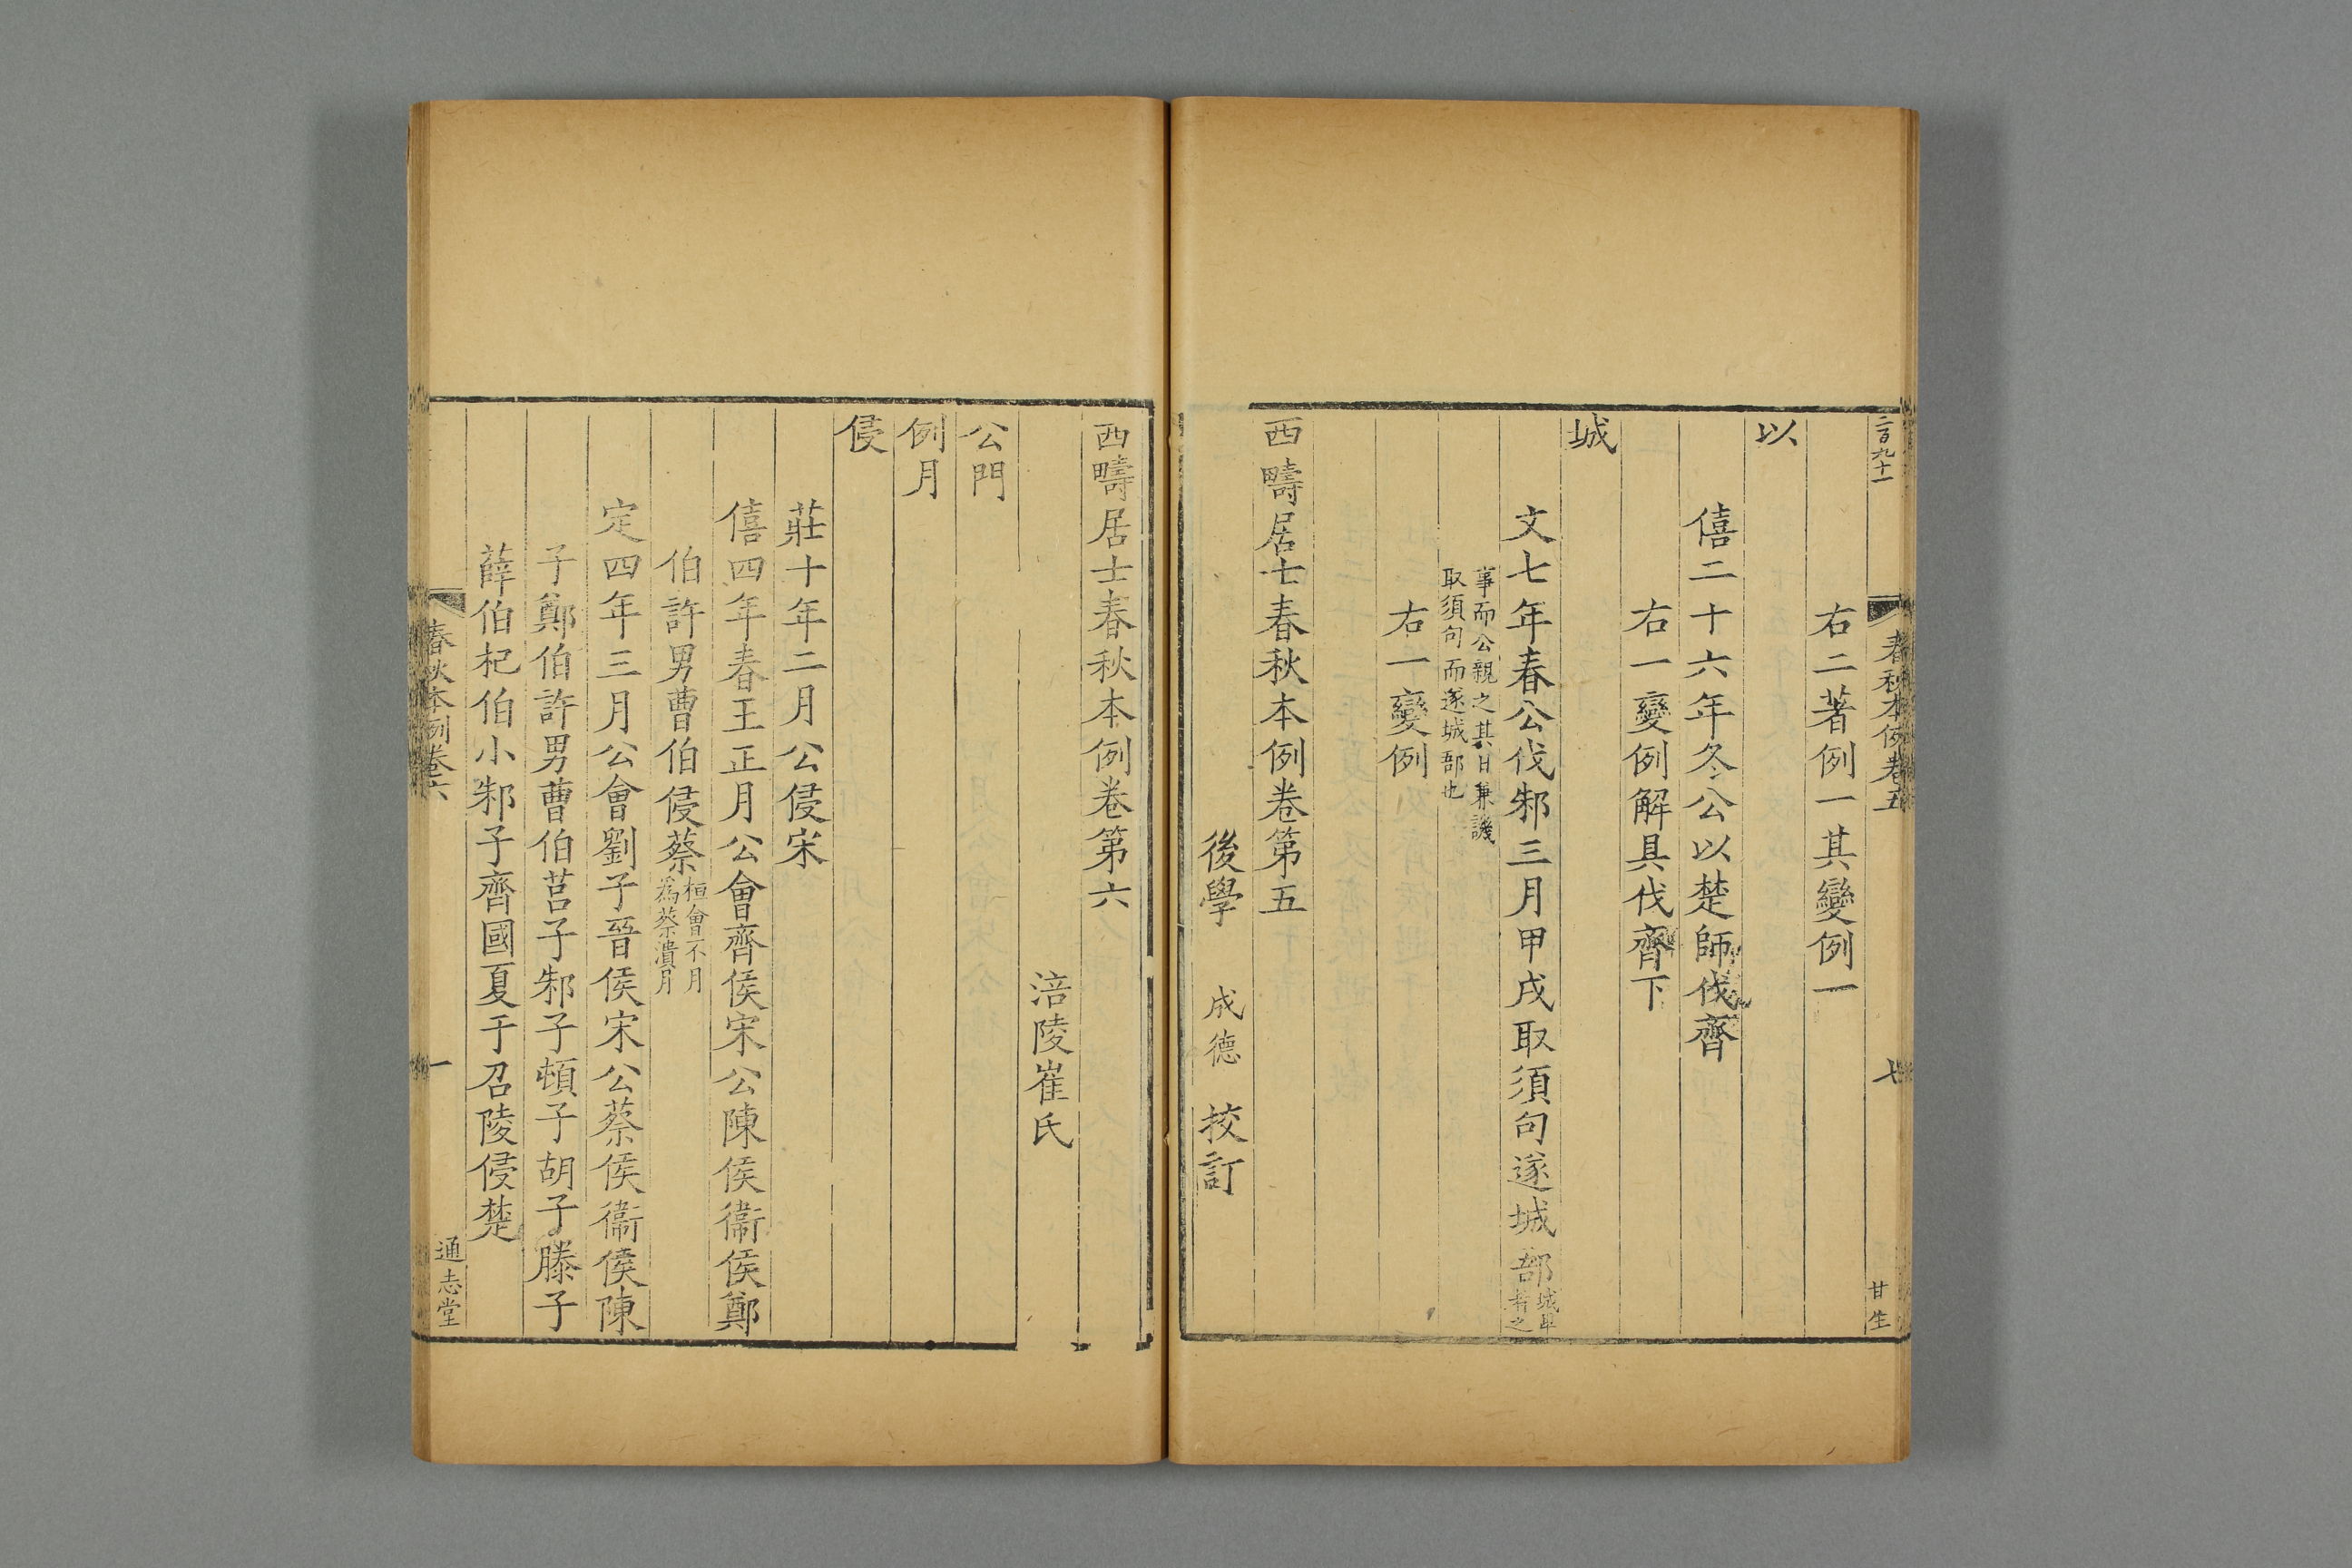 二百九十一
春秋本例卷五
七
甘生
右二著例一其變例一
以
僖二十六年冬公以楚師伐齊
右一變例解具伐齊下
城
文七年春公伐邾三月甲戌取須句遂城郚
城畢
者之
事而公親之其日兼譏
取須句而遂城郚也
右一變例
西疇居士春秋本例卷第五
後學 成德 校訂
西疇居士春秋本例卷第六
涪陵崔氏
公門
例月
侵
莊十年二月公侵宋
僖四年春王正月公會齊侯宋公陳侯衞侯鄭
伯許男曹伯侵蔡
桓會不月
爲蔡潰月
定四年三月公會劉子晉侯宋公蔡侯衞侯陳
子鄭伯許男曹伯莒子邾子頓子胡子滕子
薛伯杞伯小邾子齊國夏于召陵侵楚
春秋本例卷六
一
通志堂